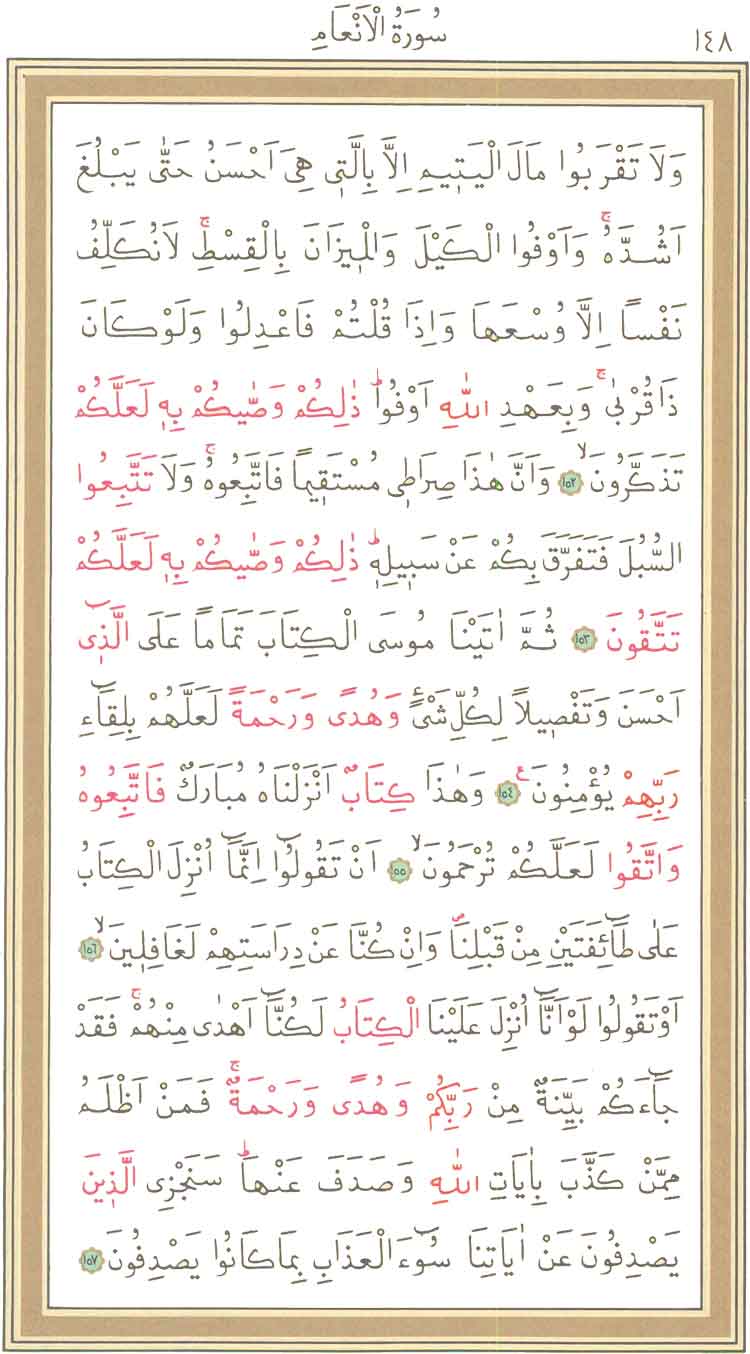 سُورَةُ الْاَنْعَامِ
١٤٨
وَلَا تَقْرَبُوا مَالَ الْيَتٖيمِ اِلَّا بِالَّتٖى هِىَ اَحْسَنُ حَتّٰى يَبْلُغَ
اَشُدَّهُۚ وَاَوْفُوا الْكَيْلَ وَالْمٖيزَانَ بِالْقِسْطِۚ لَانُكَلِّفُ
نَفْساً اِلَّا وُسْعَهَا وَاِذَا قُلْتُمْ فَاعْدِلُوا وَلَوْكَانَ
ذَاقُرْبٰىۚ وَبِعَهْدِ اللّٰهِ اَوْفُواؕ ذٰلِكُمْ وَصّٰيكُمْ بِهٖ لَعَلَّكُمْ
تَذَكَّرُونَۙ ﴿١٥٢﴾ وَاَنَّ هٰذَا صِرَاطٖى مُسْتَقٖيماً فَاتَّبِعُوهُۚ وَلَا تَتَّبِعُوا
السُّبُلَ فَتَفَرَّقَ بِكُمْ عَنْ سَبٖيلِهٖؕ ذٰلِكُمْ وَصّٰيكُمْ بِهٖ لَعَلَّكُمْ
تَتَّقُونَ ﴿١٥٣﴾ ثُمَّ اٰتَيْنَا مُوسَى الْكِتَابَ تَمَاماً عَلَى الَّذٖٓى
اَحْسَنَ وَتَفْصٖيلاً لِكُلِّ شَىْءٍ وَهُدًى وَرَحْمَةً لَعَلَّهُمْ بِلِقَٓاءِ
رَبِّهِمْ يُؤْمِنُونَࣖ ﴿١٥٤﴾ وَهٰذَا كِتَابٌ اَنْزَلْنَاهُ مُبَارَكٌ فَاتَّبِعُوهُ
وَاتَّقُوا لَعَلَّكُمْ تُرْحَمُونَۙ ﴿١٥٥﴾ اَنْ تَقُولُٓوا اِنَّمَٓا اُنْزِلَ الْكِتَابُ
عَلٰى طَٓائِفَتَيْنِ مِنْ قَبْلِنَا وَاِنْ كُنَّا عَنْ دِرَاسَتِهِمْ لَغَافِلٖينَۙ ﴿١٥٦﴾
اَوْتَقُولُوا لَوْاَنَّٓا اُنْزِلَ عَلَيْنَا الْكِتَابُ لَكُنَّٓا اَهْدٰى مِنْهُمْۚ فَقَدْ
جَٓاءَكُمْ بَيِّنَةٌ مِنْ رَبِّكُمْ وَهُدًى وَرَحْمَةٌۚ فَمَنْ اَظْلَمُ
مِمَّنْ كَذَّبَ بِاٰيَاتِ اللّٰهِ وَصَدَفَ عَنْهَاؕ سَنَجْزِى الَّذٖينَ
يَصْدِفُونَ عَنْ اٰيَاتِنَا سُٓوءَ الْعَذَابِ بِمَاكَانُوا يَصْدِفُونَ ﴿١٥٧﴾